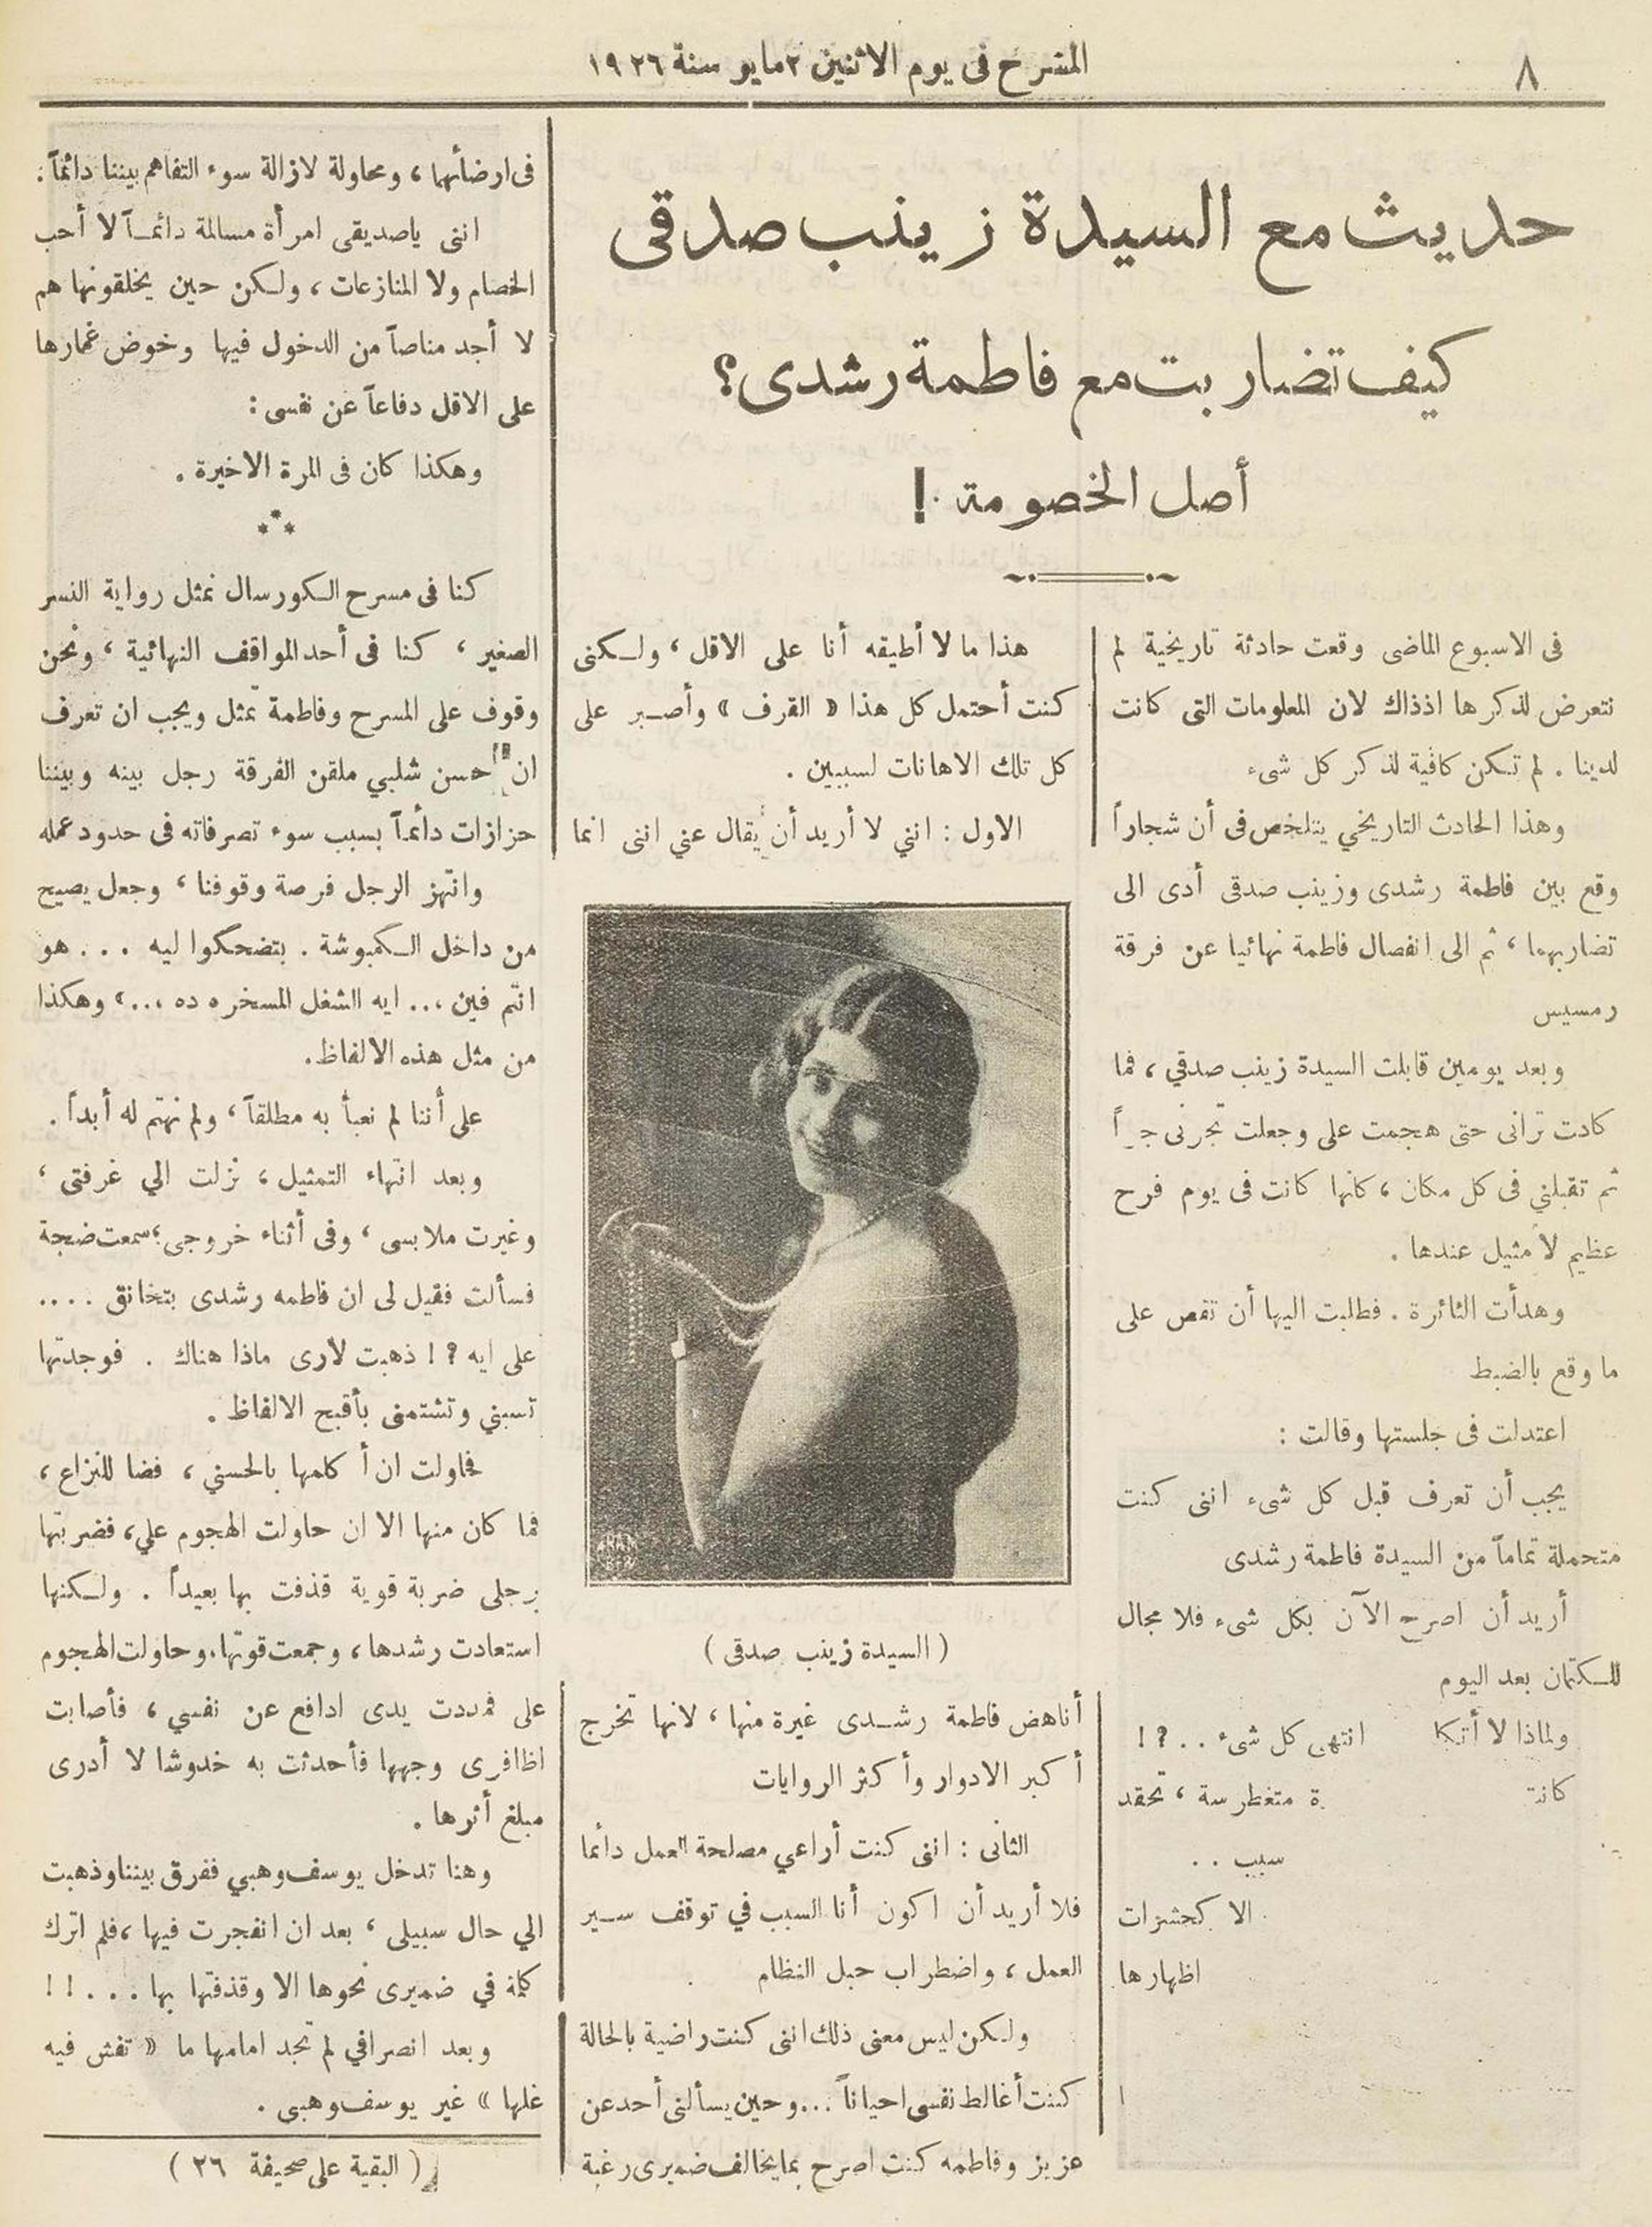 ٨
المسرح فى يوم الاثنين ٢ مايو سنة ١٩٢٦
حديث مع السيدة زينب صدقى
كيف تضاربت مع فاطمة رشدى؟
أصل الخصومة !
فى الاسبوع الماضى وقعت حادثة تاريخية لم
نتعرض لذكرها اذذاك لان المعلومات التى كانت
لدينا . لم تكن كافية لذكر كل شىء
وهذا الحادث التاريخي يتلخص فى أن شجاراً
وقع بين فاطمة رشدى وزينب صدقى أدى الى
تضاربهما ، ثم الى انفصال فاطمة نهائيا عن فرقة
رمسيس
وبعد يومين قابلت السيدة زينب صدقي ، فما
كادت ترانى حتى هجمت على وجعلت تجرنى جراً
ثم تقبلني فى كل مكان ، كانها كانت فى يوم فرح
عظيم لا مثيل عندها .
وهدأت الثائرة . فطلبت اليها أن تقص على
ما وقع بالضبط
اعتدلت فى جلستها وقالت :
يجب أن تعرف قبل كل شىء اننى كنت
متحملة تماماً من السيدة فاطمة رشدى
أريد أن اصرح الآن بكل شىء فلا مجال
للكتمان بعد اليوم
ولماذا لا أتكا انتهى كل شىء . . ? !
كانت ة متغطرسة ، تحقد
سبب . .
الا كحشرات
اظهارها
هذا ما لا أطيقه أنا على الاقل ، ولكنى
كنت أحتمل كل هذا « القرف » وأصبر على
كل تلك الاهانات لسببين .
الاول : انني لا أريد أن يقال عني اننى انما
( السيدة زينب صدقى )
أناهض فاطمة رشدى غيرة منها ، لانها تخرج
أكبر الادوار وأكثر الروايات
الثانى : اننى كنت أراعي مصلحة العمل دأئما
فلا أريد أن اكون أنا السبب في توقف سير
العمل ، واضطراب حبل النظام
ولكن ليس معنى ذلك اننى كنت راضية بالحالة
كنت أغالط نفسى احياناً ... وحين يسألنى أحد عن
عزيز وفاطمه كنت اصرح بما يخالف ضميرى رغبة
فى ارضأئها ، ومحاولة لازالة سوء التفاهم بيننا دائماً :
اننى ياصديقى امرأة مسالمة دائماً لا أحب
الخصام ولا المنازعات ، ولكن حين يخلقونها هم
لا أجد مناصاً من الدخول فيها وخوض غمارها
على الاقل دفاعاً عن نفسى :
وهكذا كان فى المرة الاخيرة .
***
كنا فى مسرح الكورسال نمثل رواية النسر
الصغير ، كنا فى أحد المواقف النهائية ، ونحن
وقوف على المسرح وفاطمة تمثل ويجب ان تعرف
ان حسن شلبي ملقن الفرقة رجل بينه وبيننا
حزازات دأئماً بسبب سوء تصرفاته فى حدود عمله
وانتهز الرجل فرصة وقوفنا ، وجعل يصيح
من داخل الكمبوشة . بتضحكوا ليه . . . هو
انتم فين ... ايه الشغل المسخره ده ...، وهكذا
من مثل هذه الالفاظ.
على أننا لم نعبأ به مطلقاً ، ولم نهتم له أبداً .
وبعد انتهاء التمثيل ، نزلت الي غرفتى ،
وغيرت ملابسى ، وفى أثناء خروجى ؛ سمعت ضجة
فسألت فقيل لى ان فاطمه رشدى بتخانق . . . .
على ايه ? ! ذهبت لأرى ماذا هناك . فوجدتها
تسبني وتشتمنى بأقبح الالفاظ .
فحاولت ان أكلمها بالحسني ، فضا للنزاع ،
فما كان منها الا ان حاولت الهجوم علي، فضربتها
برجلى ضربة قوية قذفت بها بعيداً . ولكنها
استعادت رشدها ، وجمعت قوتها . وحاولت الهجوم
على فمددت يدى ادافع عن نفسي ، فأصابت
اظافرى وجهها فأحدثت به خدوشا لا أدرى
مبلغ أثرها .
وهنا تدخل يوسف وهبي ففرق بيننا وذهبت
الي حال سبيلى ، بعد ان انفجرت فيها ، فلم اترك
كلمة في ضميرى نحوها الا وقذفتها بها . . . ! !
وبعد انصرافي لم تجد امامها ما « تفش فيه
غلها » غير يوسف وهبى .
( البقية على صحيفة ٢٦ )